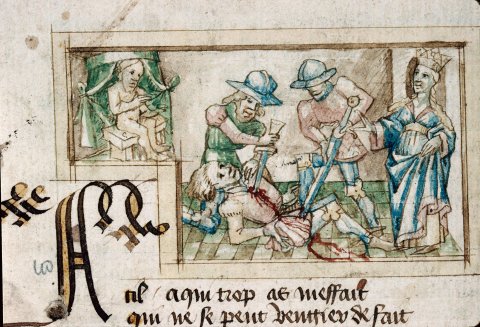 A cil a qui trop as meffait
qui ne se peut vengier de fait